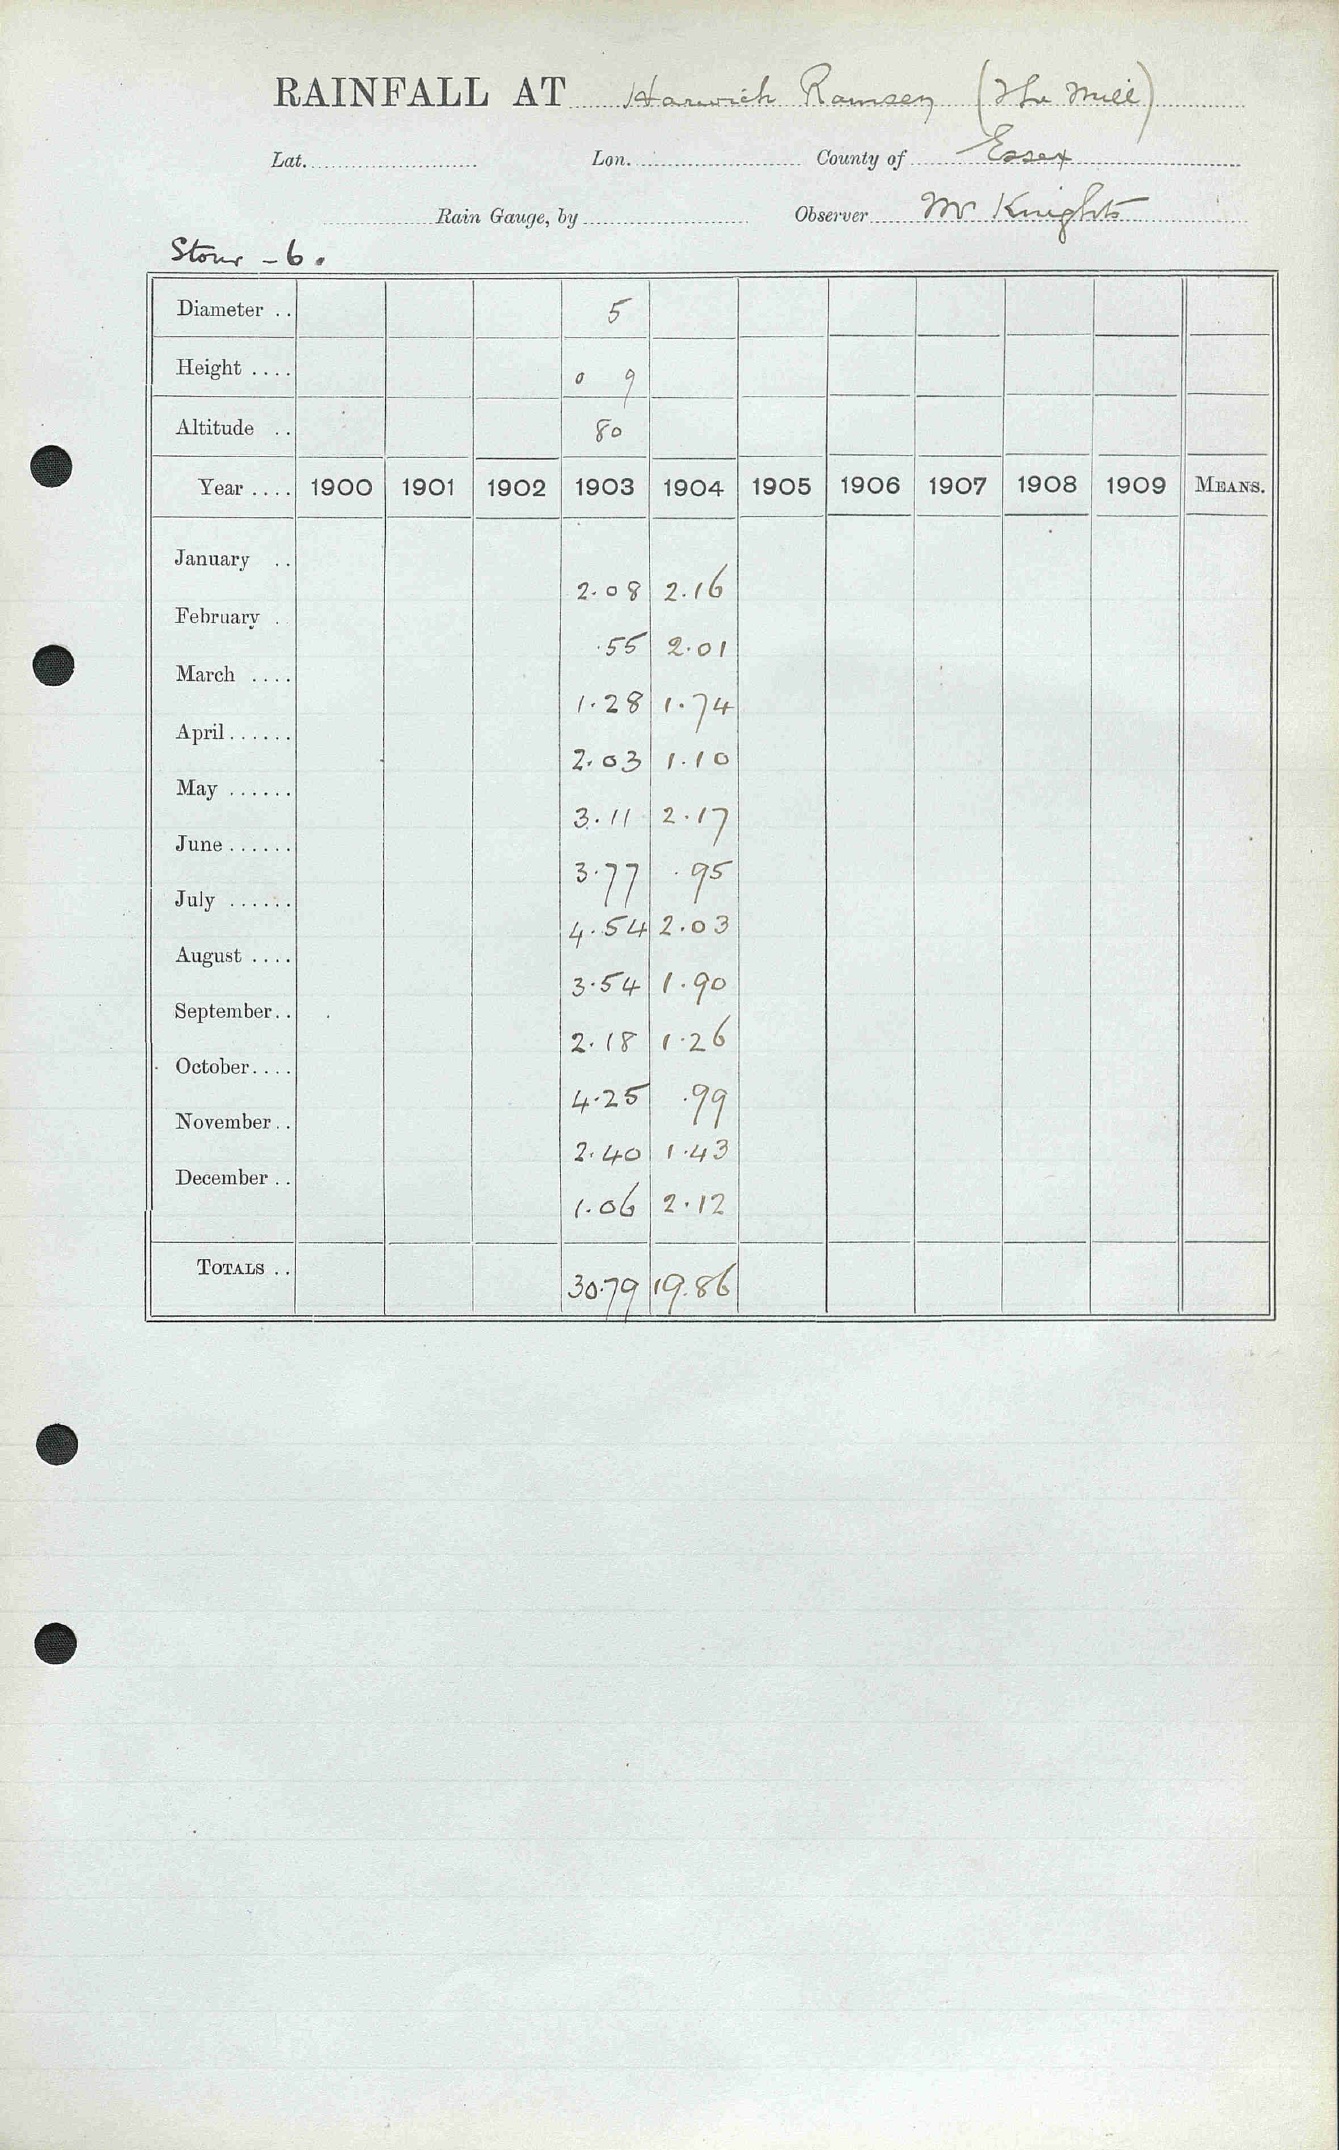 RAINFALL AT Harwich Ramsey (The Mill)
Lat. Lon. County of Essex
Rain Gauge, by Observer Mr Knights
Stour - 6.
Diameter .. 5
Height .... 0 9
Altitude .. 80
Year .... 1900 1901 1902 1903 1904 1905 1906 1907 1908 1909 MEANS.
January .. 2.08 2.16
February . .55 2.01
March .... 1.28 1.74
April ...... 2.03 1.10
May ...... 3.11 2.17
June ...... 3.77 .95
July ...... 4.54 2.03
August .... 3.54 1.90
September .. 2.18 1.26
October .... 4.25 .99
November .. 2.40 1.43
December .. 1.06 2.12
TOTALS .. 30.79 19.86